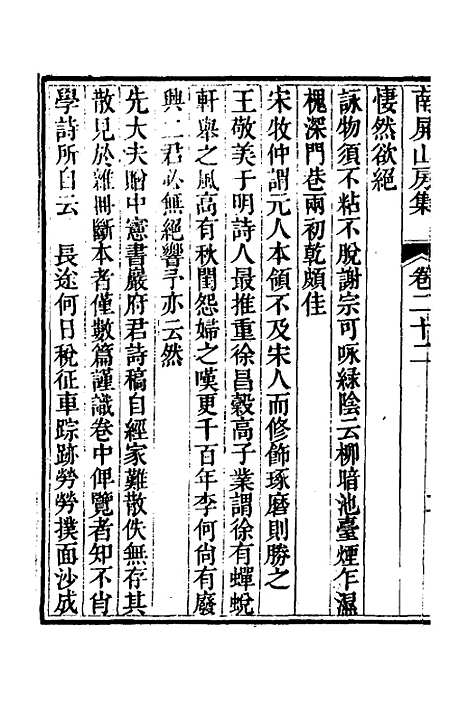 南屏山房集 卷二十二
悽然欲絕
詠物須不粘不脫謝宗可咏綠陰云柳暗池臺煙乍濕
槐深門巷雨初乾頗佳
宋牧仲謂元人本領不及宋人而修飾琢磨則勝之
王敬美于明詩人最推重徐昌穀高子業謂徐有蟬蛻
軒舉之風高有秋閨怨婦之嘆更千百年李何尚有廢
興二君必無絕響予亦云然
先大夫贈中憲書巖府君詩稿自經家難散佚無存其
散見於雜冊斷本者僅數篇謹識卷中俾覽者知不肖
學詩所自云 長途何日稅征車踪跡勞勞撲面沙成